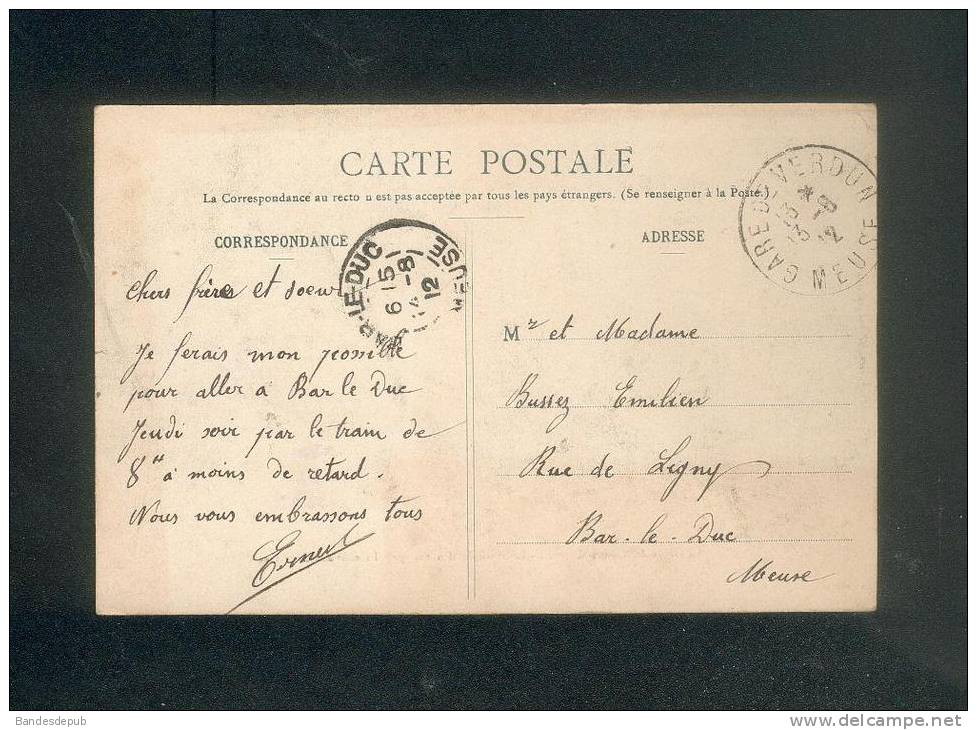 CARTE POSTALE
La Correspondance au recto n'est pas acceptée par tous les pays étrangers. (Se renseigner à la Poste.)
CORRESPONDANCE
ADRESSE
GARE DE VERDUN
MEUSE
13 * -8
12
BAR-LE-DUC
MEUSE
6 15
14 -8
12
Chers frères et soeur
Je ferais mon possible
pour aller à Bar le Duc
Jeudi soir par le train de
8h à moins de retard.
Nous vous embrassons tous
Ernest
Mr et Madame
Bussez Emilien
Rue de Ligny
Bar-le-Duc
Meuse
Bandesdepub
www.delcampe.net